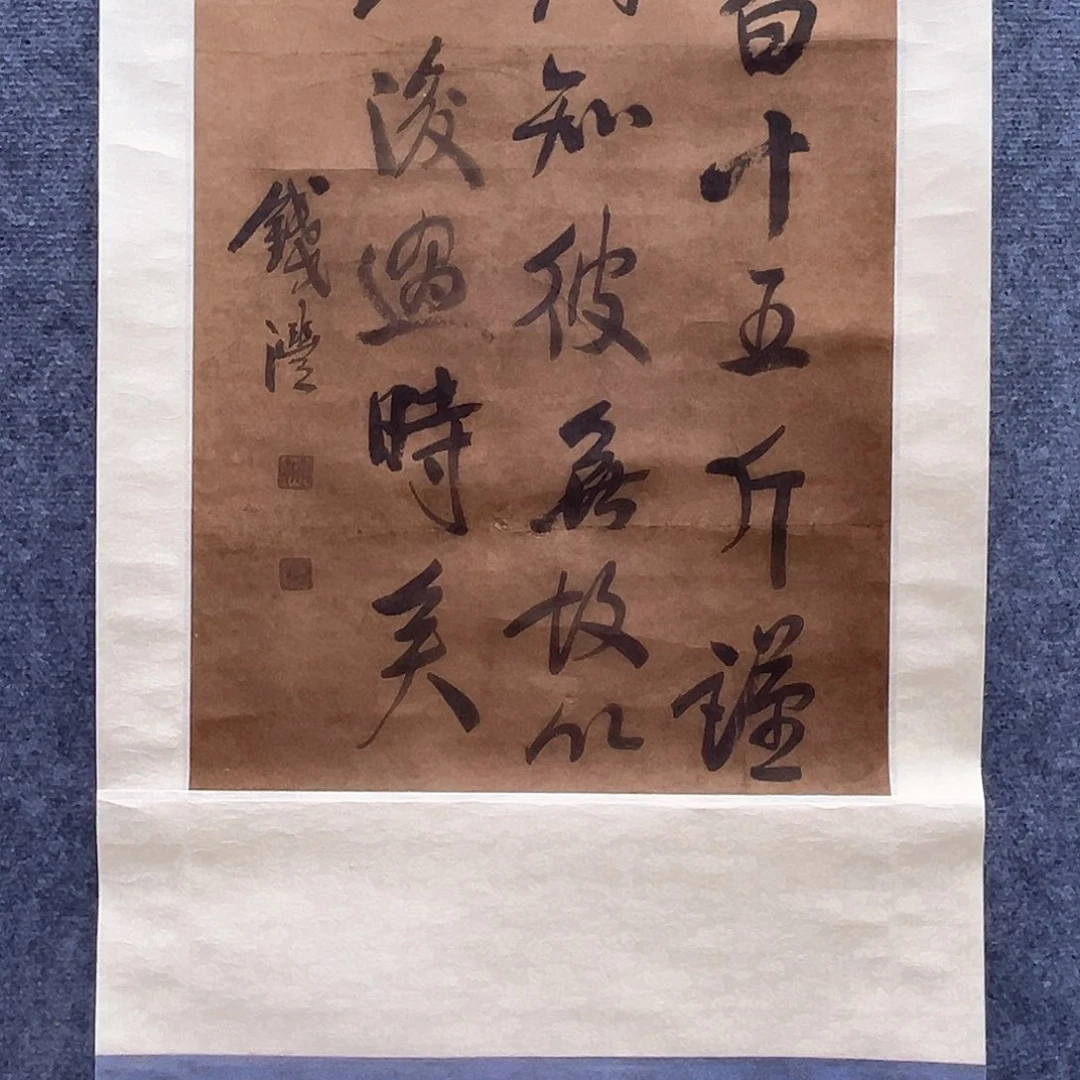 百十五斤謹
知彼無故以
後過時矣
錢灃